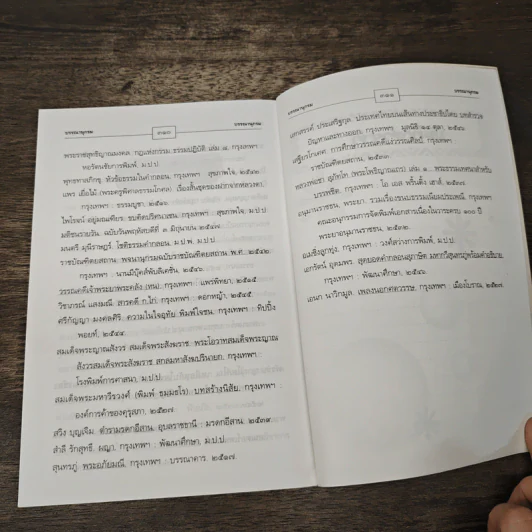 บรรณานุกรม
๓๑๐
พระราชสุทธิญาณมงคล. กฎแห่งกรรม ธรรมปฏิบัติ เล่ม ๗. กรุงเทพฯ :
หอรัตนชัยการพิมพ์, ม.ป.ป.
พุทธทาสภิกขุ. หัวข้อธรรมในคำกลอน. กรุงเทพฯ : สุขภาพใจ, ๒๕๔๒.
แพร เยื่อไม้ (พระครูพิศาลธรรมโกศล). เรื่องสั้นชุดของฝากจากหลวงตา.
กรุงเทพฯ : ธรรมบูชา, ๒๕๑๐.
ไพโรจน์ อยู่มณเฑียร. ขบคิดปริศนาเซน. กรุงเทพฯ : สุขภาพใจ, ม.ป.ป.
มติชนรายวัน. ฉบับวันพฤหัสบดีที่ ๓ มิถุนายน ๒๕๔๗.
มนตรี มุนีราษฎร์. โชติธรรมคำกลอน. ม.ป.พ. ม.ป.ป.
ราชบัณฑิตยสถาน. พจนานุกรมฉบับราชบัณฑิตยสถาน พ.ศ. ๒๕๔๒.
กรุงเทพฯ : นานมีบุ๊คส์พับลิเคชั่น, ๒๕๔๖.
วรรณคดีเจ้าพระยาพระคลัง (หน). กรุงเทพฯ : แพร่พิทยา, ๒๕๑๕
วิชาภรณ์ แสงมณี. สารคดี ก.ไก่. กรุงเทพฯ : ดอกหญ้า, ๒๕๔๕.
ศรีกัญญา มงคลศิริ. ความในใจอุทัย พิมพ์ใจชน. กรุงเทพฯ : ทิปปิ้ง
พอยท์, ๒๕๔๔.
สมเด็จพระญาณสังวร สมเด็จพระสังฆราช. พระโอวาทสมเด็จพระญาณ
สังวรสมเด็จพระสังฆราช สกลมหาสังฆปริณายก. กรุงเทพฯ :
โรงพิมพ์การศาสนา, ม.ป.ป.
สมเด็จพระมหาวีรวงศ์ (พิมพ์ ธมฺมธโร). บทสร้างนิสัย. กรุงเทพฯ :
องค์การค้าของคุรุสภา, ๒๕๒๗.
สวิง บุญเจิม. ตำรามรดกอีสาน. อุบลราชธานี : มรดกอีสาน, ๒๕๓๙.
สำลี รักสุทธี. ผญา. กรุงเทพฯ : พัฒนาศึกษา, ม.ป.ป.
สุนทรภู่. พระอภัยมณี. กรุงเทพฯ : บรรณาคาร, ๒๕๑๗.
บรรณานุกรม
๓๑๑
บรรณานุกรม
เสกสรรค์ ประเสริฐกุล. ประเทศไทยบนเส้นทางประชาธิปไตย บทสำรวจ
ปัญหาและทางออก. กรุงเทพฯ : มูลนิธิ ๑๔ ตุลา, ๒๕๔๖.
เสฐียรโกเศศ. การศึกษาวรรณคดีแง่วรรณศิลป์. กรุงเทพฯ :
ราชบัณฑิตยสถาน, ๒๕๓๓.
หลวงพ่อชา สุภัทโท (พระโพธิญาณเถร) เล่ม ๑. พระธรรมเทศนาสำหรับ
บรรพชิต. กรุงเทพฯ : โอ เอส พริ้นติ้ง เฮาส์, ๒๕๓๗.
อนุมานราชธน, พระยา. รวมเรื่องขนบธรรมเนียมประเพณี. กรุงเทพฯ :
คณะอนุกรรมการจัดพิมพ์เอกสารเนื่องในวาระครบ ๑๐๐ ปี
พระยาอนุมานราชธน, ๒๕๓๒.
อมเชิงลูกทุ่ง. กรุงเทพฯ : วงศ์สว่างการพิมพ์, ม.ป.ป.
เอกรัตน์ อุดมพร. สุดยอดคำกลอนสุภาษิต มหากวีสุนทรภู่พร้อมคำอธิบาย.
กรุงเทพฯ : พัฒนาศึกษา, ๒๕๔๖.
เอนก นาวิกมูล. เพลงนอกศตวรรษ. กรุงเทพฯ : เมืองโบราณ, ๒๕๒๗.